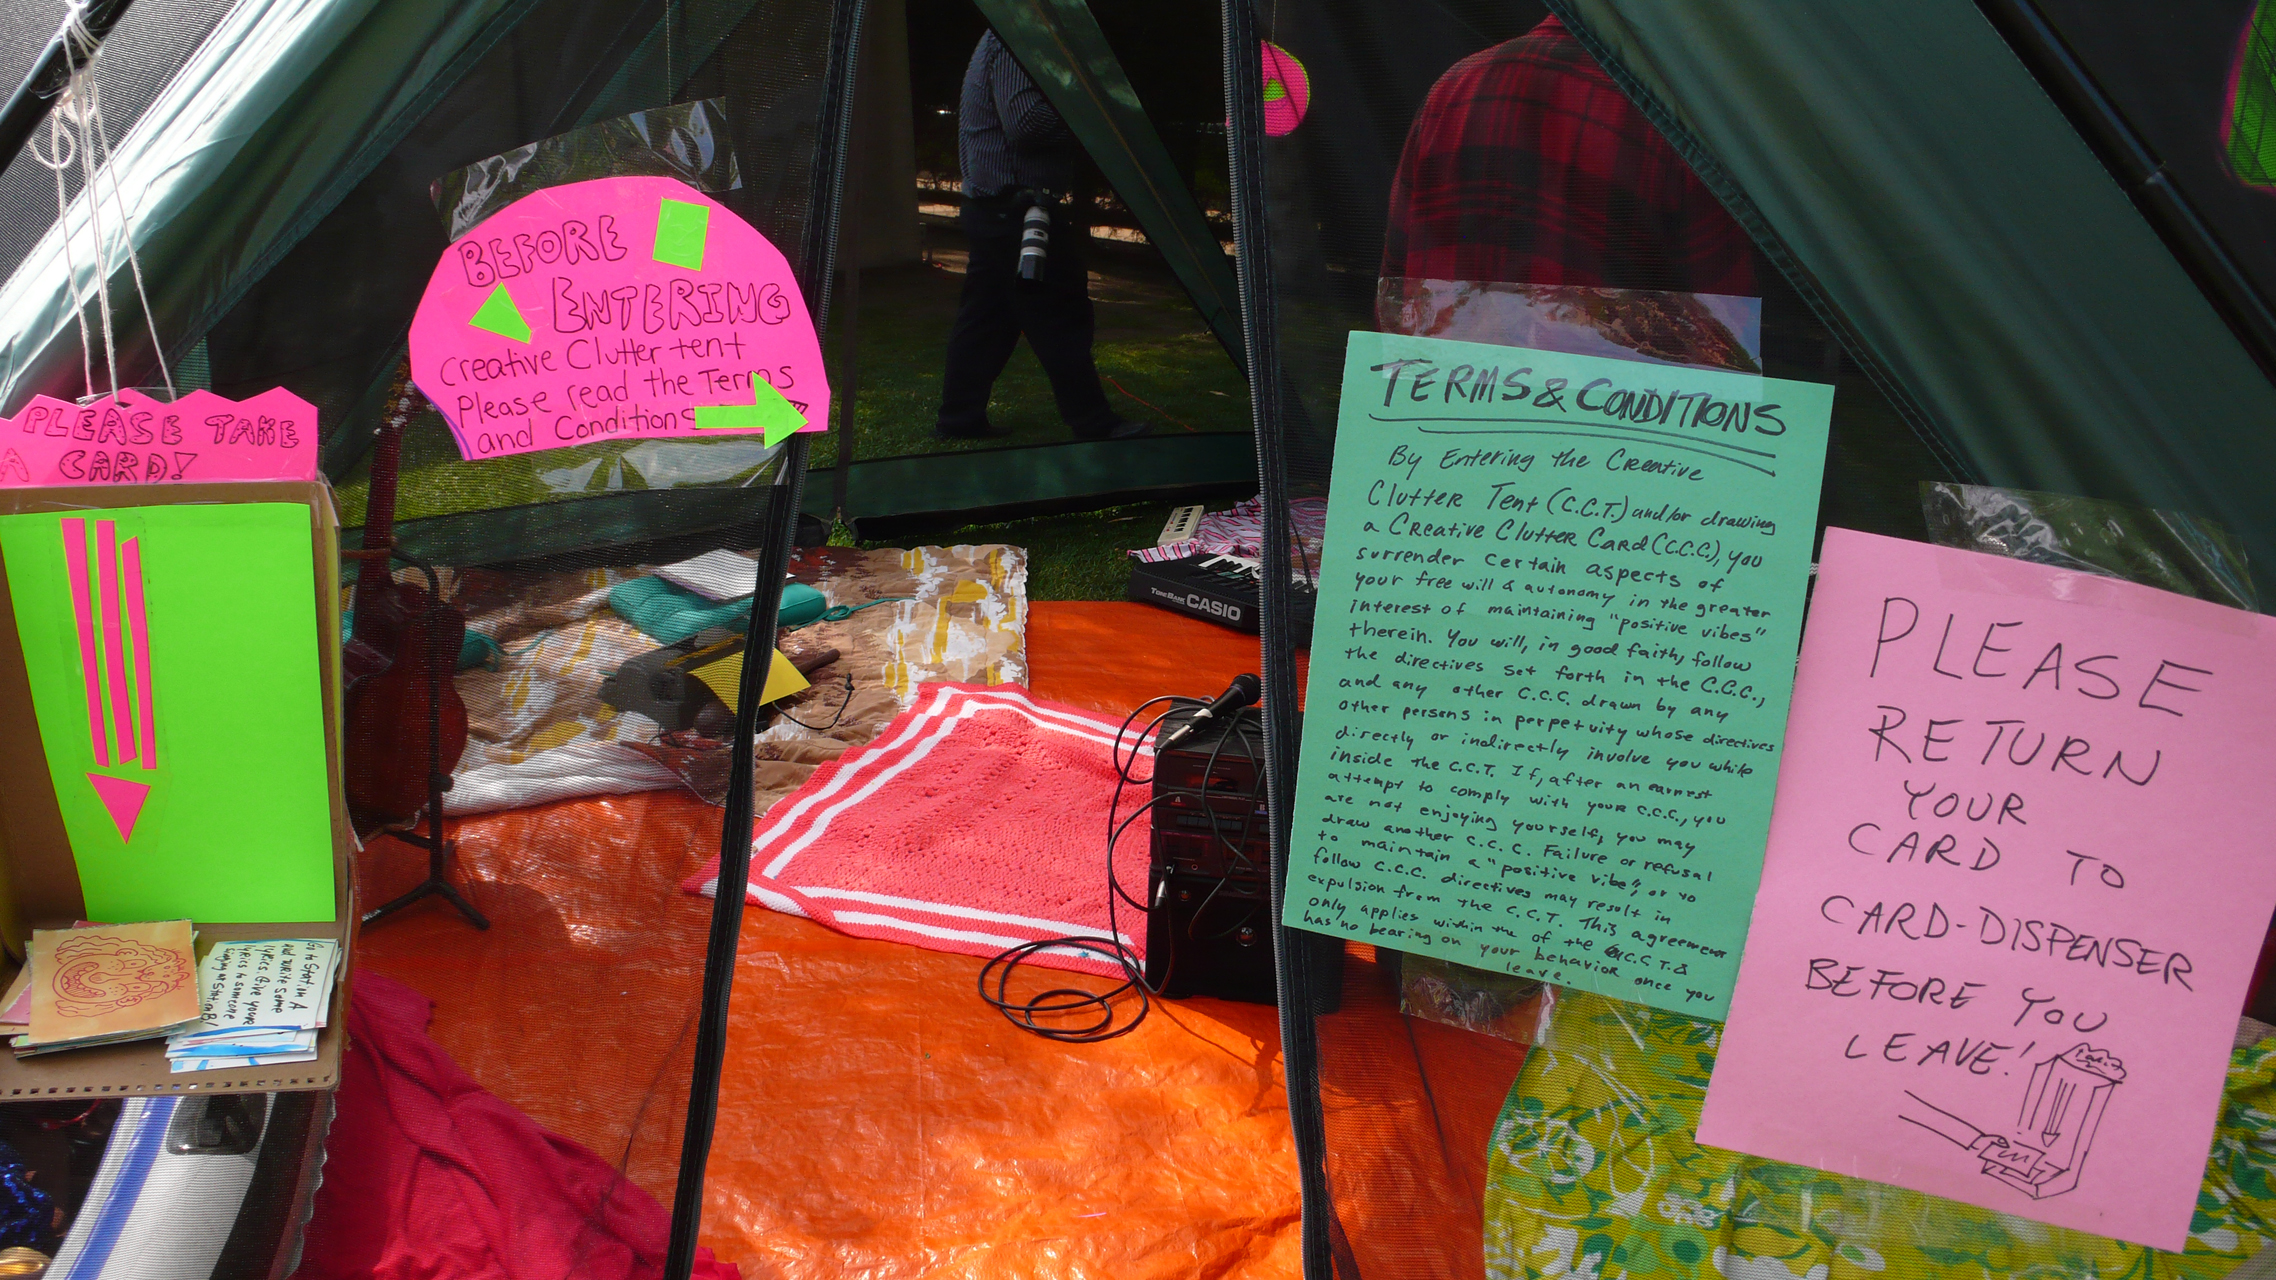 PLEASE TAKE
A CARD!
Go to Station A
and write some
lyrics. Give your
lyrics to someone
singing at Station B!
BEFORE
ENTERING
Creative Clutter tent
Please read the Terms
and Conditions
TONE BANK CASIO
TERMS & CONDITIONS
By Entering the Creative
Clutter Tent (C.C.T.) and/or drawing
a Creative Clutter Card (C.C.C.), you
surrender certain aspects of
your free will & autonomy in the greater
interest of maintaining "positive vibes"
therein. You will, in good faith, follow
the directives set forth in the C.C.C.,
and any other C.C.C. drawn by any
other persons in perpetuity whose directives
directly or indirectly involve you while
inside the C.C.T. If, after an earnest
attempt to comply with your C.C.C., you
are not enjoying yourself, you may
draw another C.C.C. Failure or refusal
to maintain a "positive vibe", or to
follow C.C.C. directives may result in
expulsion from the C.C.T. This agreement
only applies within the of the C.C.T. &
has no bearing on your behavior once you
leave.
PLEASE
RETURN
YOUR
CARD TO
CARD-DISPENSER
BEFORE YOU
LEAVE!